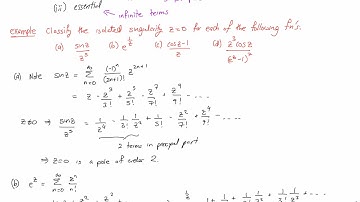 (iii) essential
infinite terms
example: Classify the isolated singularity z=0 for each of the following fn's.
(a) sinz/z⁵ (b) e^(1/z) (c) (cosz-1)/z (d) z³cosz/(e^z-1)²
(a) Note sinz = ∑_{n=0}^{∞} (-1)ⁿ/(2n+1)! z^{2n+1}
= z - z³/3! + z⁵/5! - z⁷/7! + z⁹/9! - ....
z≠0 ⇒ sinz/z⁵ = 1/z⁴ - 1/3! 1/z² + 1/5! - z²/7! + z⁴/9! - ....
2 terms in principal part
⇒ z=0 is a pole of order 2.
(b) e^z = ∑_{n=0}^{∞} zⁿ/n!